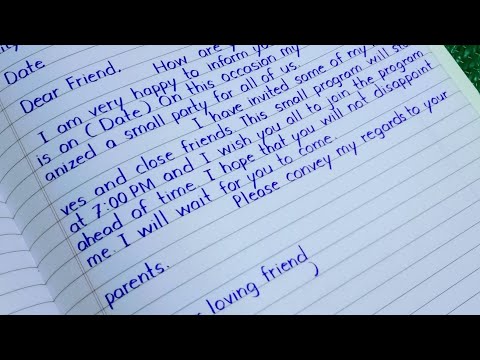 Date
Dear Friend. How are
I am very happy to inform you
is on (Date) On this occasion my
anized a small party for all of us.
I have invited some of my
ves and close friends. This small program will
at 7:00 PM and I wish you all to join the program
ahead of time. I hope that you will not disappoint
me. I will wait for you to come.
Please convey my regards to your
parents.
loving friend)